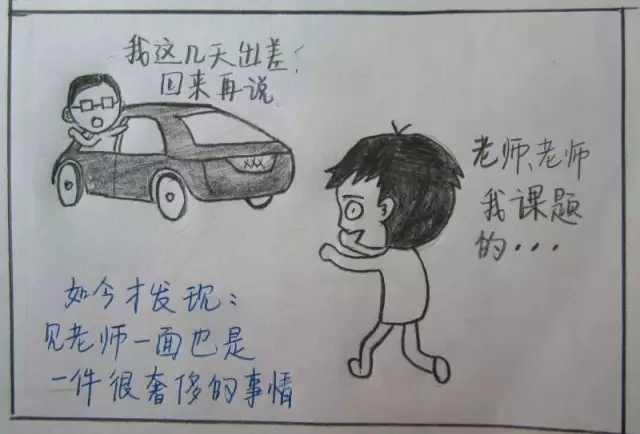 我这几天出差,
回来再说
老师、老师
我课题
的...
如今才发现:
见老师一面也是
一件很奢侈的事情